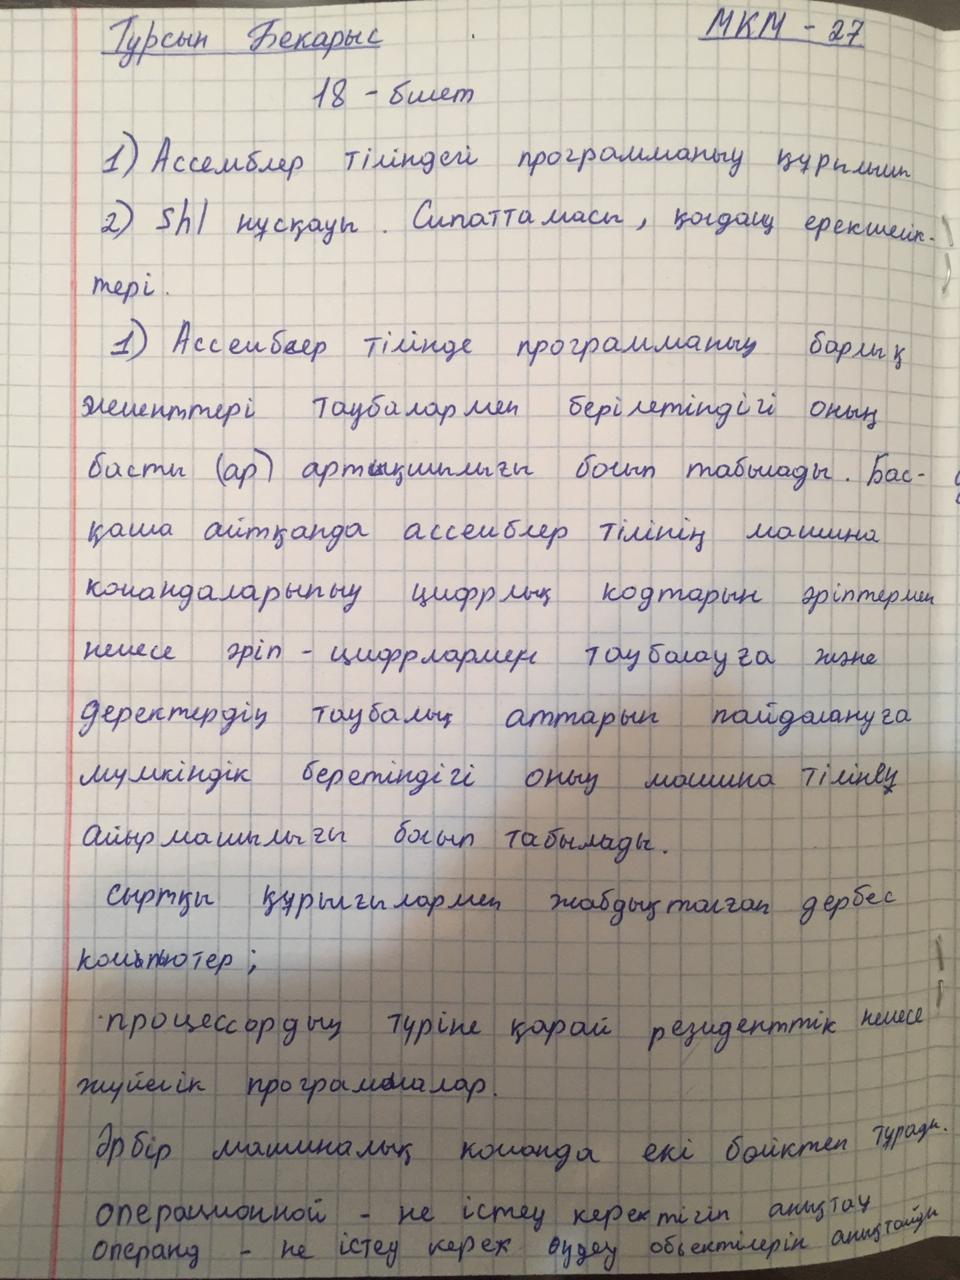 Турсын Бекарыс МКМ - 27
18 - билет
1) Ассемблер тіліндегі программаның құрылымы
2) Shl нұсқауы. Сипаттамасы, қолдану ерекшелік-
тері.
1) Ассемблер тілінде программаның барлық
элементтері таңбалармен берілетіндігі оның
басты (ар) артықшылығы болып табылады. Бас-
қаша айтқанда ассемблер тілінің машина
командаларының цифрлық кодтарын әріптермен
немесе әріп - цифрлармен таңбалауға және
деректердің таңбалық аттарын пайдалануға
мүмкіндік беретіндігі оның машина тілінен
айырмашылығы болып табылады.
Сыртқы құрылғылармен жабдықталған дербес
компьютер;
процессордың түріне қарай резиденттік немесе
жүйелік программалар.
Әрбір машиналық команда екі бөліктен тұрады.
операционной - не істеу керектігін анықтау
операнд - не істеу керек өңдеу объектілерін анықтайды